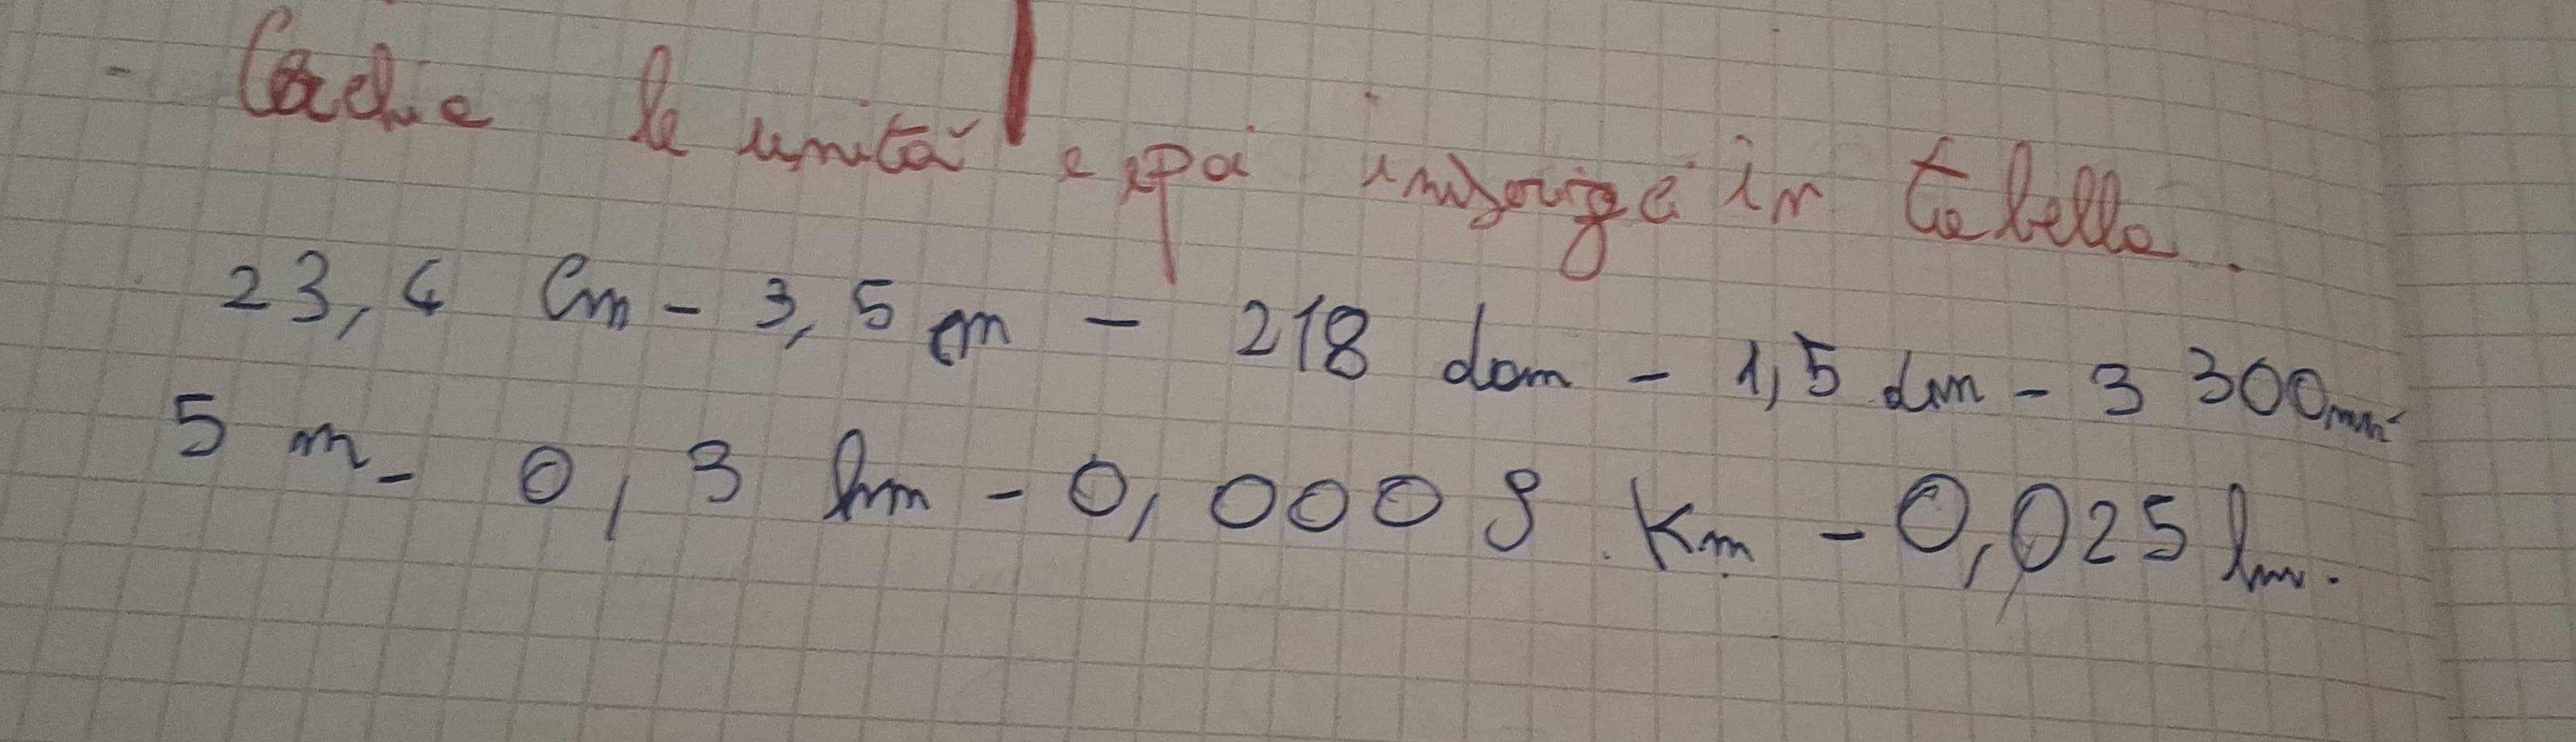 - Cerchia le unità e poi inserisci in tabella.
23,4 cm - 3,5 m - 218 dam - 1,5 dm - 3 300 mm
5 m - 0,3 hm - 0,0009 Km - 0,025 hm.